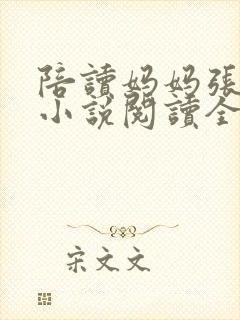 陪讀媽媽張
小說閱讀全
宋文文